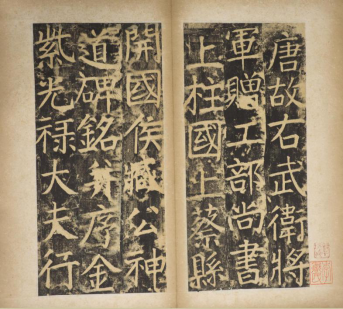 唐故右武衛將
軍贈工部尚書
上柱國上蔡縣
開國侯臧公神
道碑銘并序金
紫光禄大夫行